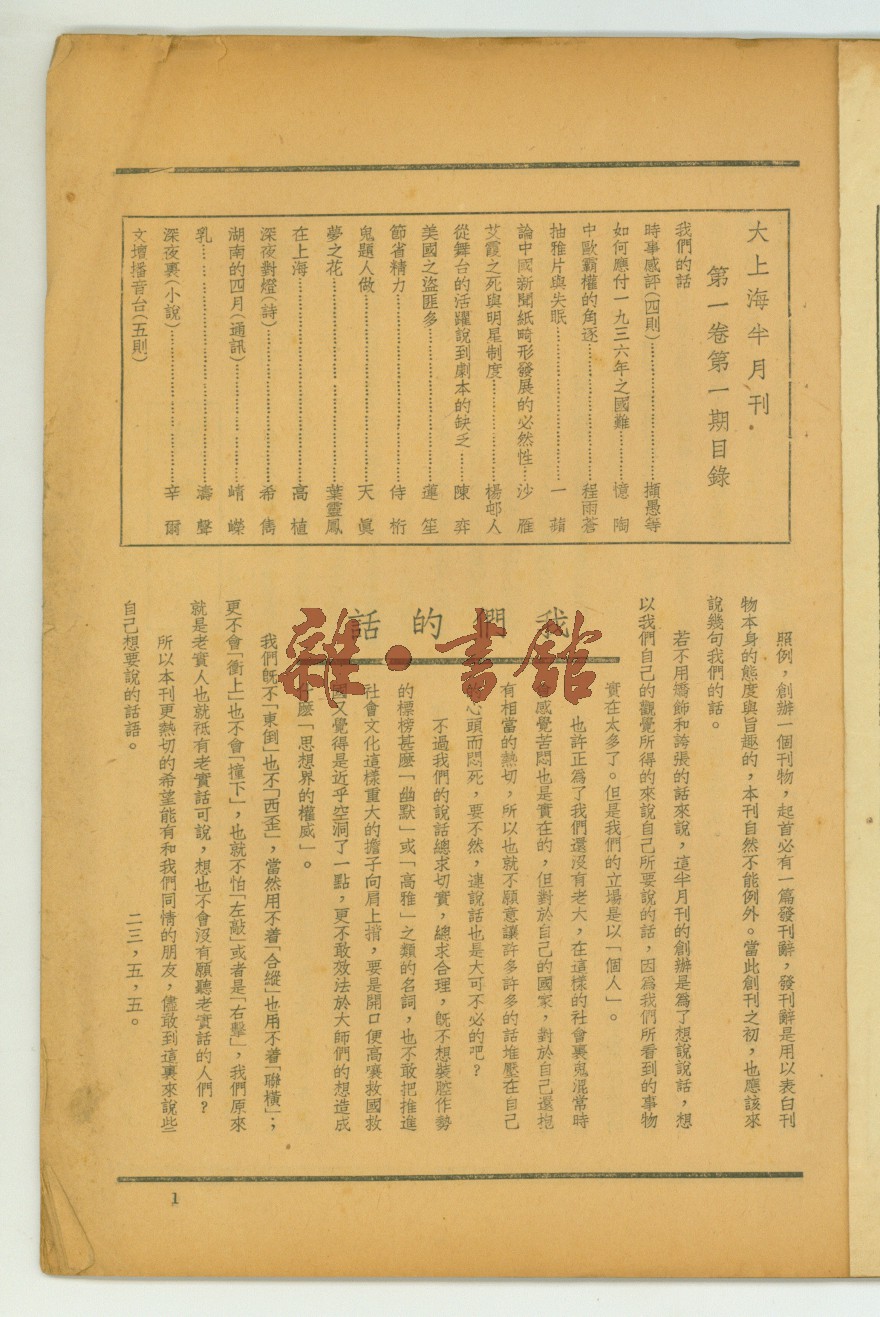 大上海半月刊
第一卷第一期目錄
我們的話
時事感評(四則)……擷愚等
如何應付一九三六年之國難……憶 陶
中歐霸權的角逐……程雨蒼
抽雅片與失眠……一 蘋
論中國新聞紙畸形發展的必然性……沙 雁
艾霞之死與明星制度……楊邨人
從舞台的活躍說到劇本的缺乏……陳 弈
美國之盜匪多……蓮 笙
節省精力……侍 桁
鬼題人做……天 眞
夢之花……葉靈鳳
在上海……高 植
深夜對燈(詩)……希 雋
湖南的四月(通訊)……嶹 嶸
乳……濤 聲
深夜裏(小說)……辛 爾
文壇播音台(五則)
我們的話
照例,創辦一個刊物,起首必有一篇發刊辭,發刊辭是用以表白刊
物本身的態度與旨趣的,本刊自然不能例外。當此創刊之初,也應該來
說幾句我們的話。
若不用矯飾和誇張的話來說,這半月刊的創辦是爲了想說說話,想
以我們自己的觀覺所得的來說自己所要說的話,因爲我們所看到的事物
實在太多了。但是我們的立場是以「個人」。
也許正爲了我們還沒有老大,在這樣的社會裏鬼混常時
感覺苦悶也是實在的,但對於自己的國家,對於自己還抱
有相當的熱切,所以也就不願意讓許多許多的話堆壓在自己
心頭而悶死,要不然,連說話也是大可不必的吧?
不過我們的說話總求切實,總求合理,旣不想裝腔作勢
的標榜甚麽「幽默」或「高雅」之類的名詞,也不敢把推進
社會文化這樣重大的擔子向肩上揹,要是開口便高嚷救國救
國又覺得是近乎空洞了一點,更不敢效法於大師們的想造成
什麽「思想界的權威」。
我們旣不「東倒」也不「西歪」,當然用不着「合縱」也用不着「聯橫」;
更不會「衝上」也不會「撞下」,也就不怕「左敲」或者是「右擊」,我們原來
就是老實人也就祗有老實話可說,想也不會沒有願聽老實話的人們?
所以本刊更熱切的希望能有和我們同情的朋友,儘敢到這裏來說些
自己想要說的話語。
二三,五,五。
雜·書館
1